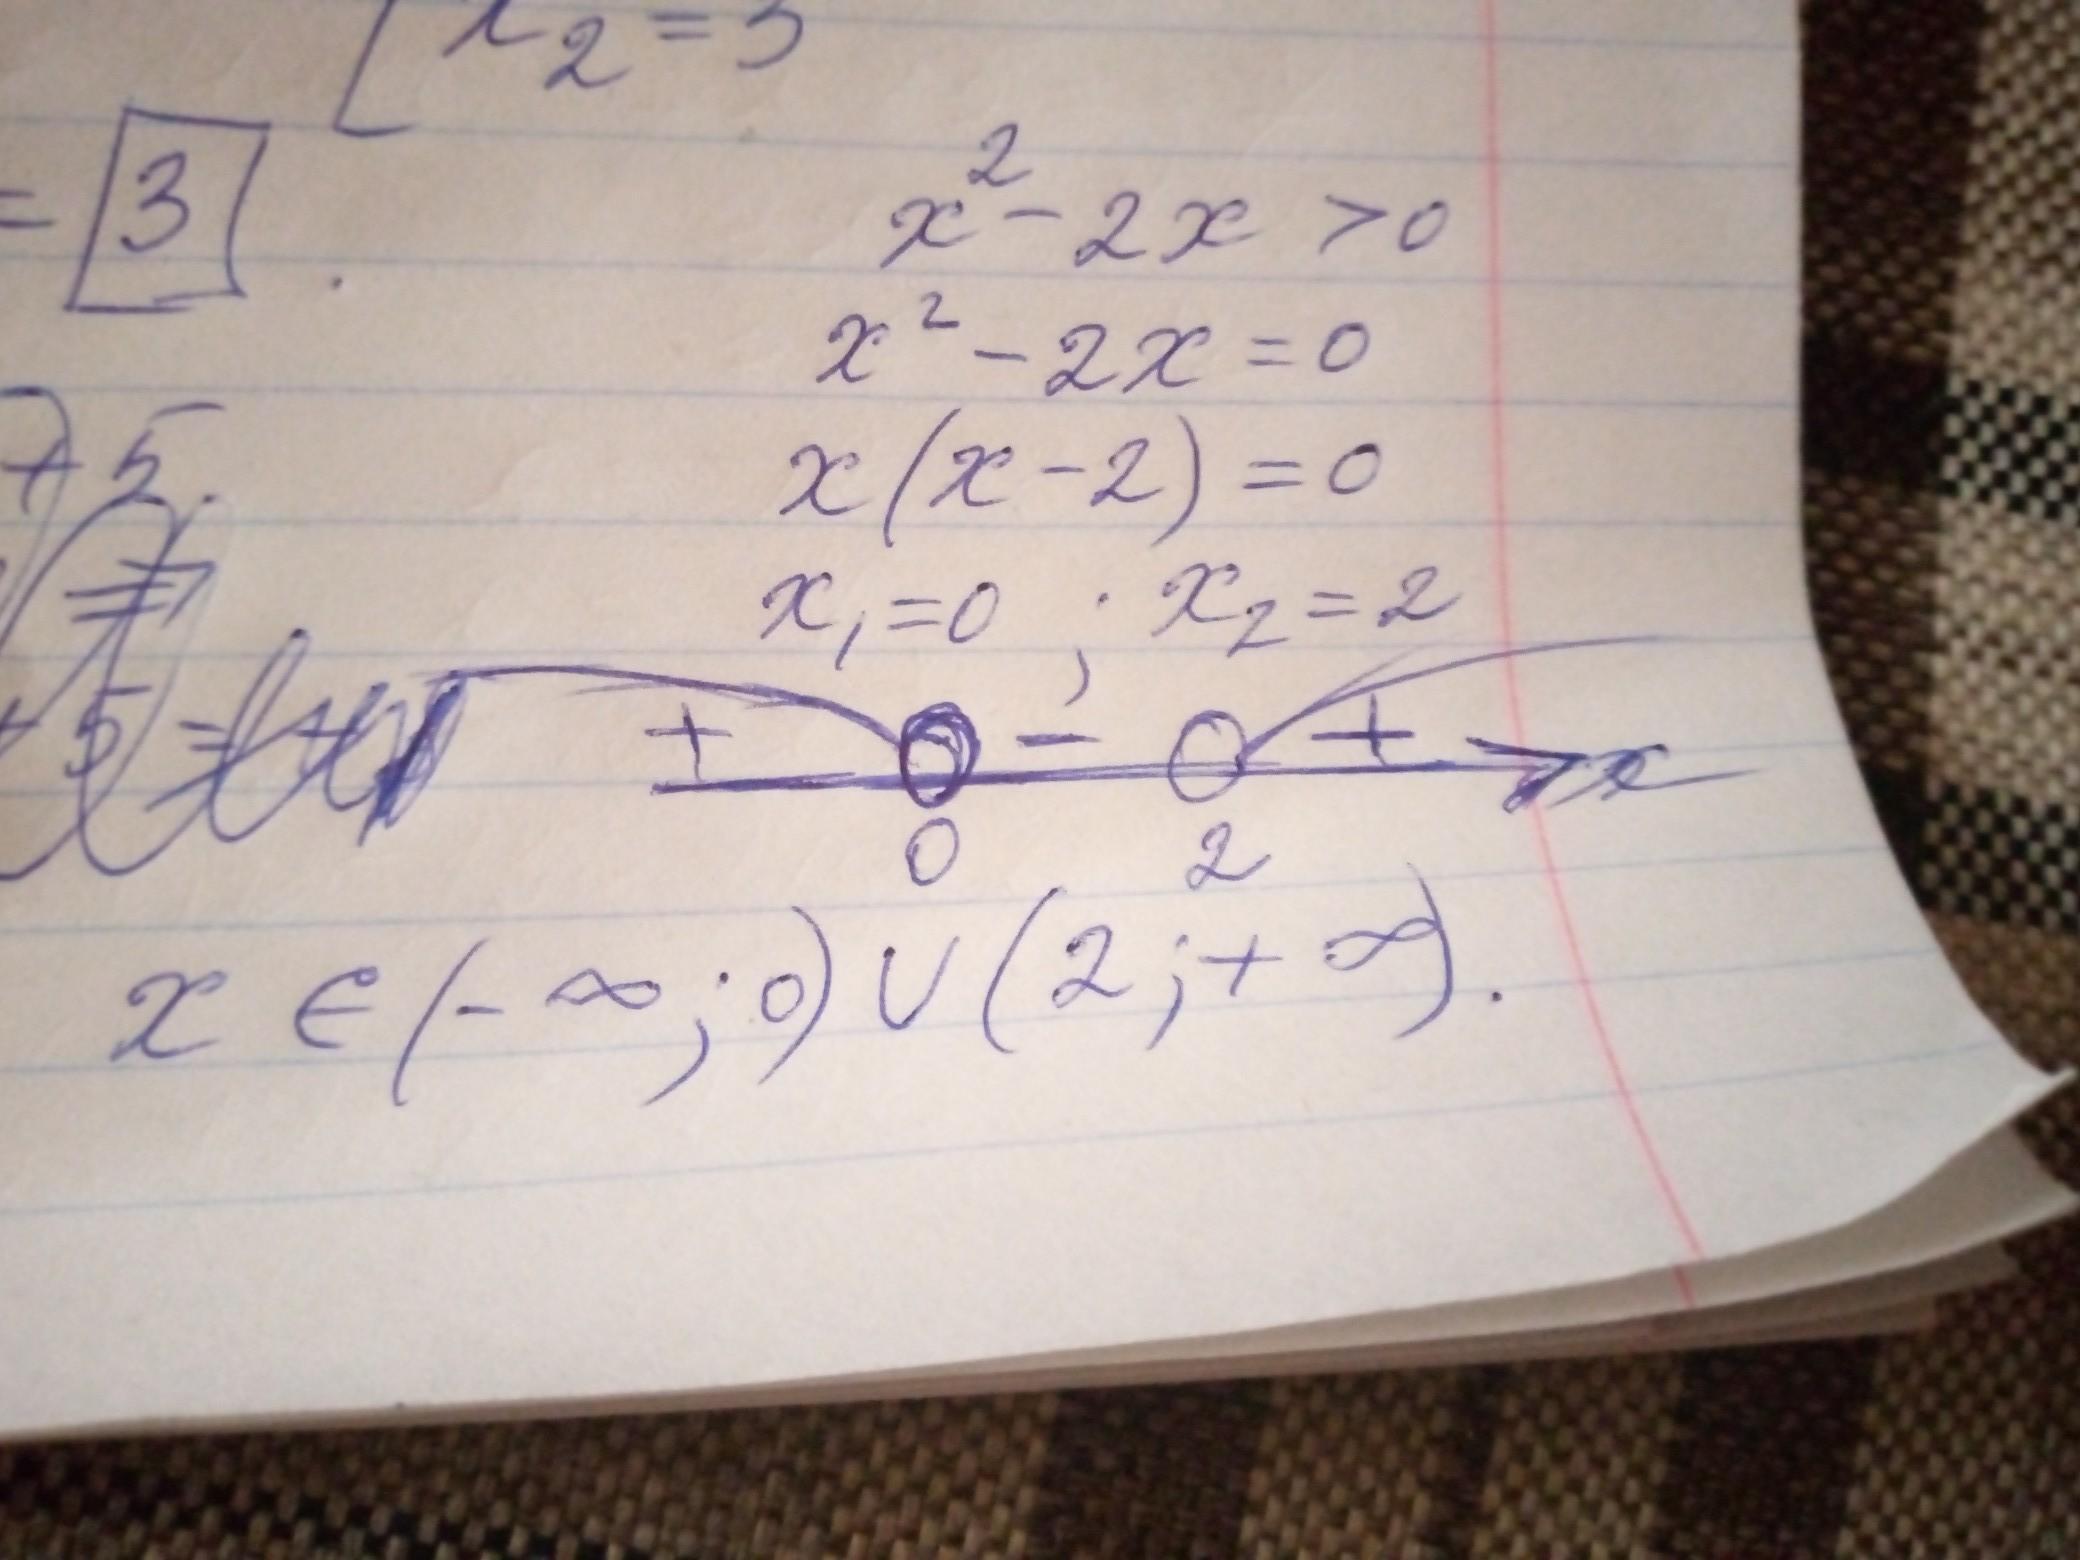 x₂ = 3
= 3 .
x² - 2x > 0
x² - 2x = 0
+ 5.
x(x - 2) = 0
x₁ = 0 ; x₂ = 2
+ 5 =
+ - + x
0 2
x ∈ (- ∞; 0) ∪ (2; + ∞).